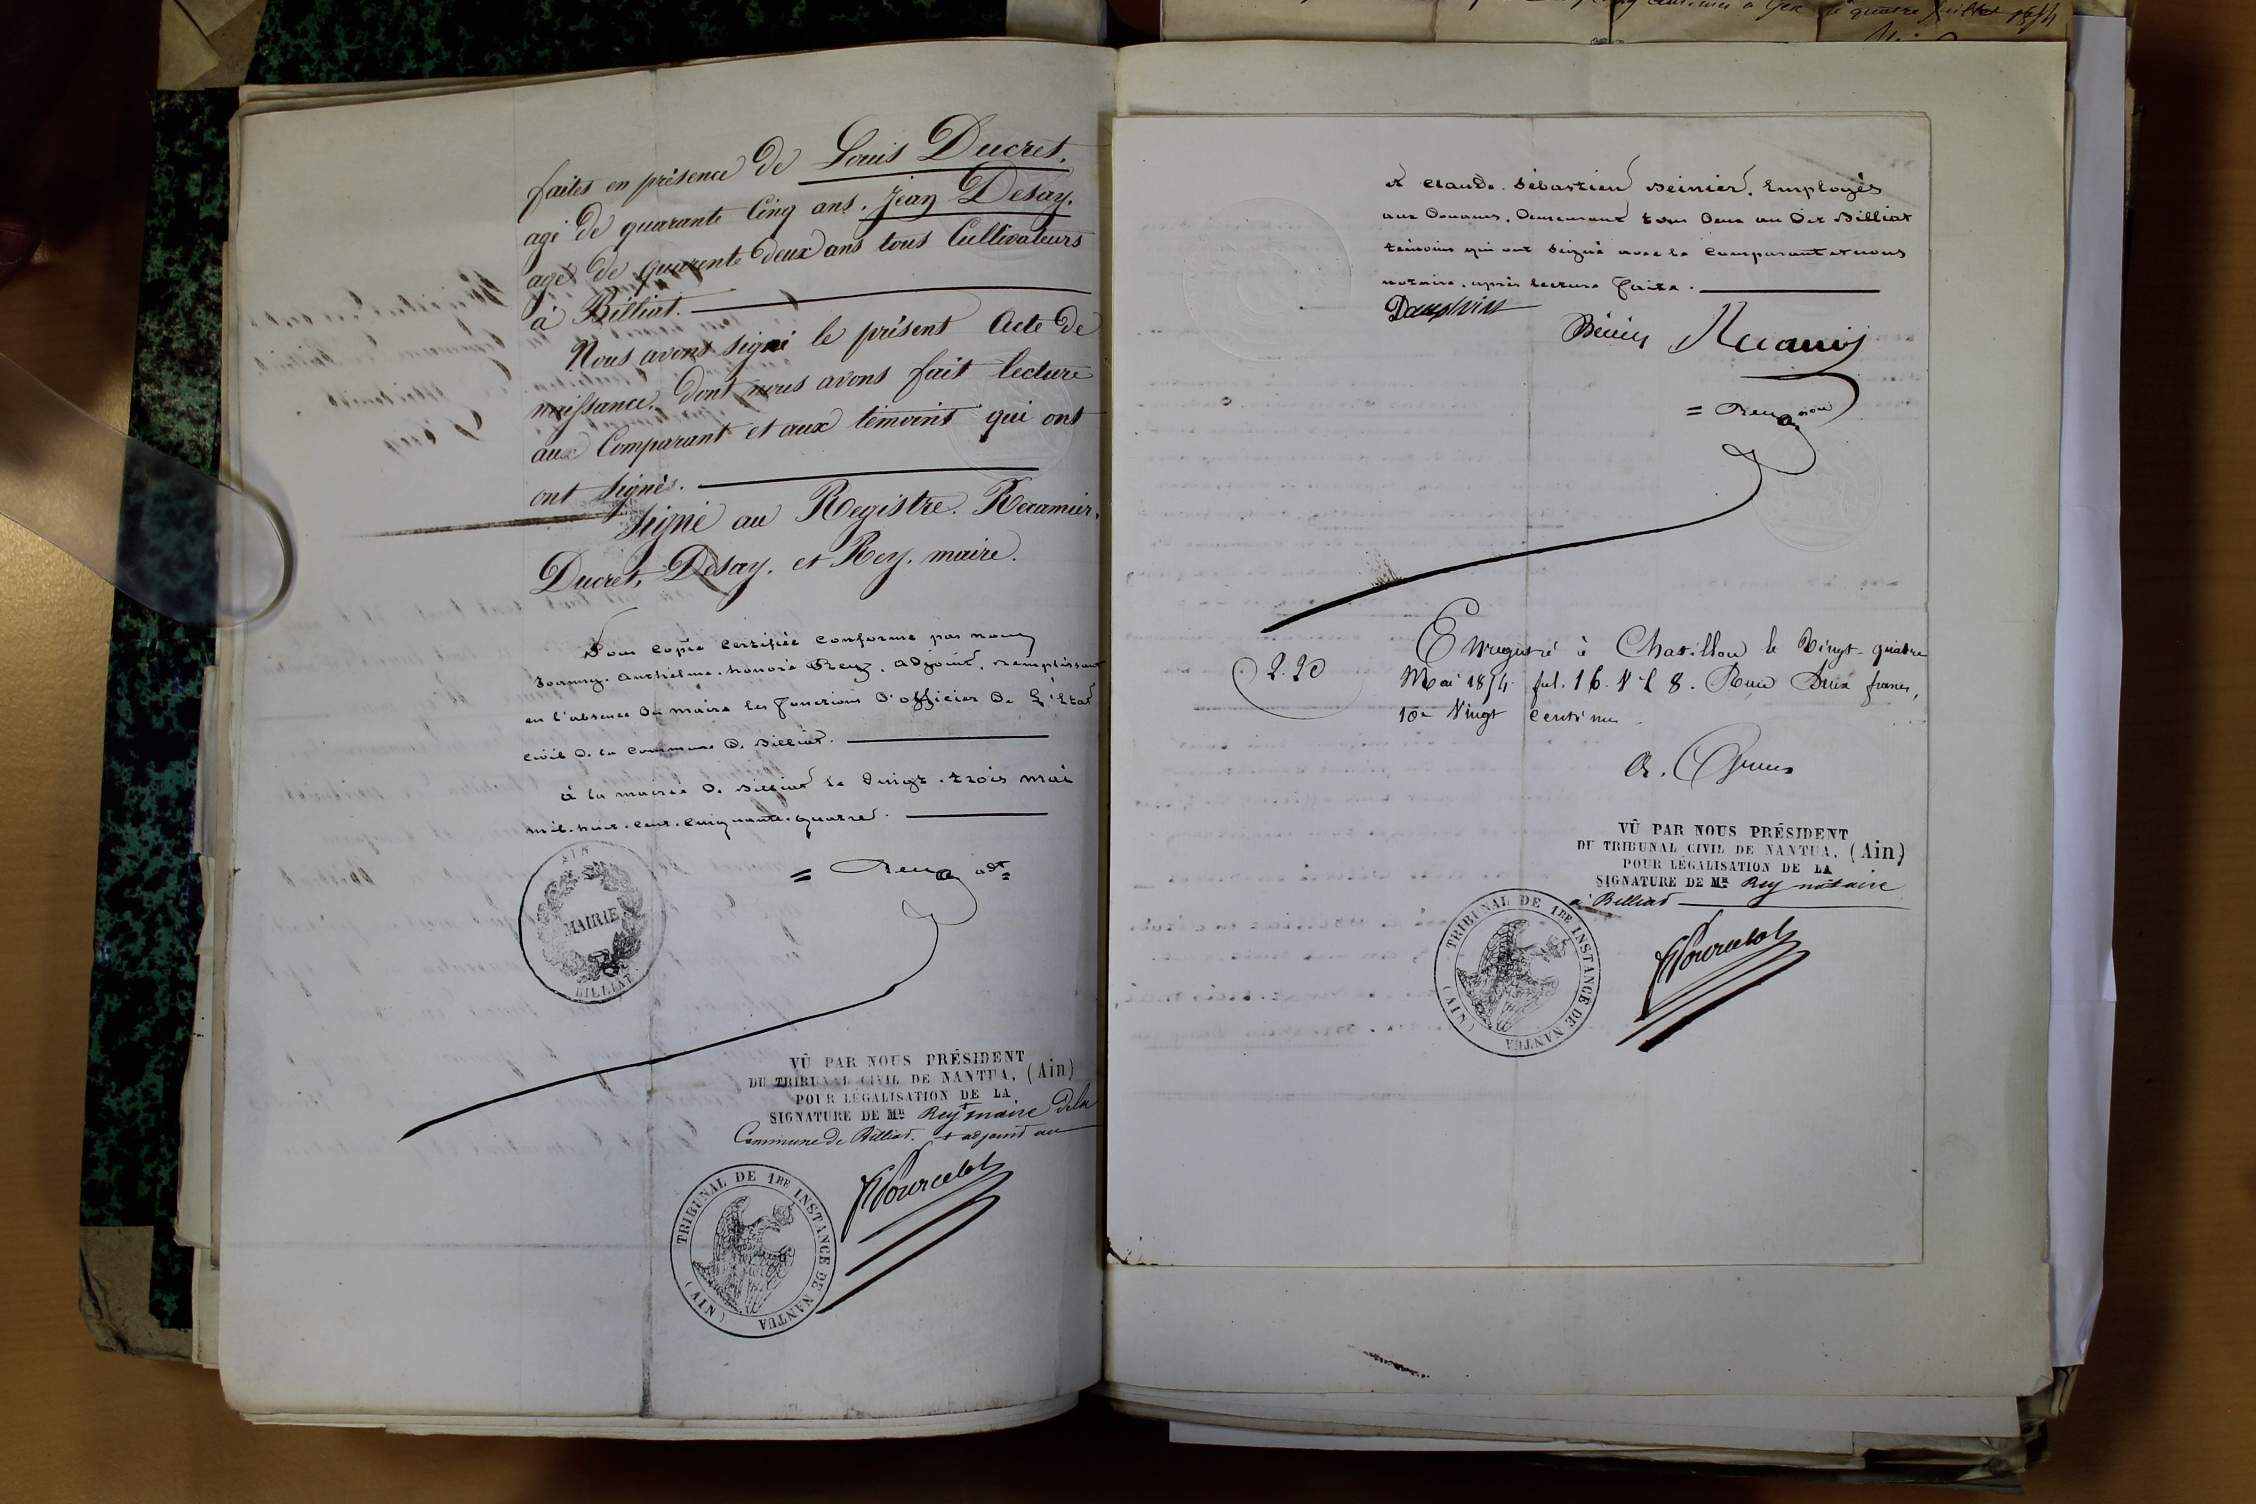 faites en présence de Louis Ducret.
agé de quarante Cinq ans. Jean Desay.
agé de quarente deux ans tous Cultivateurs
à Billiat.
Nous avons signé le présent Acte de
naissance. Dont nous avons fait lecture
aux Comparant et aux témoins qui ont
ont signés.
Signé au Registre. Recamier,
Ducret, Desay. et Rey. maire.
Pour copie certifiée conforme par nous
Anthelme. honoré Rey. adjoint. remplissant
en l'absence du maire les fonctions d'officier de l'état
civil de la commune de Billiat.
à la mairie de Billiat le vingt-trois mai
mil-huit-cent-cinquante-quatre.
= Rey adt =
AIN
MAIRIE
BILLIAT
VÛ PAR NOUS PRÉSIDENT
DU TRIBUNAL CIVIL DE NANTUA, (Ain)
POUR LÉGALISATION DE LA
SIGNATURE DE MR. Rey + maire de la
Commune de Billiat. + adjoint au
TRIBUNAL DE 1RE INSTANCE DE NANTUA (AIN)
et Claude. Sébastien Beinier. Employés
aux Douanes. Demeurant tous deux au dit Billiat
témoins qui ont signé avec le comparant et nous
notaire. après lecture faite.
Dauphin
Récamier
= Rey nore
2.20
Enregistré à Chatillon le Vingt-quatre
Mai 1854 fol. 16. Vo C 8. Reçu Deux francs,
10e Vingt centimes
VÛ PAR NOUS PRÉSIDENT
DU TRIBUNAL CIVIL DE NANTUA, (Ain)
POUR LÉGALISATION DE LA
SIGNATURE DE MR. Rey notaire
à Billiat
TRIBUNAL DE 1RE INSTANCE DE NANTUA (AIN)